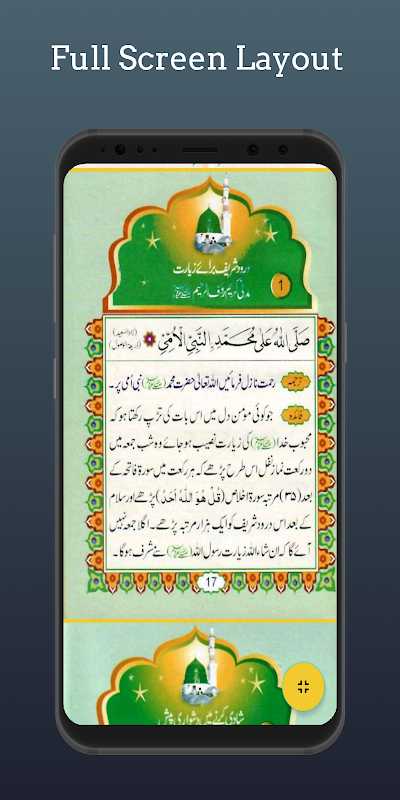 Full Screen Layout
درود شریف برائے زیارت
مدنی کریم رؤف الرحیم ﷺ
1
صَلَّى اللّٰهُ عَلٰى مُحَمَّدِ ِالنَّبِيِّ الْاُمِّيِّ
ترجمہ رحمت نازل فرمائیں اللہ تعالیٰ حضرت محمد (ﷺ) نبی امی پر۔
فائدہ جو کوئی مؤمن دل میں اس بات کی تڑپ رکھتا ہو کہ
محبوب خدا (ﷺ) کی زیارت نصیب ہو جائے وہ شب جمعہ میں
دو رکعت نماز نفل اس طرح پڑھے کہ ہر رکعت میں سورۃ فاتحہ کے
بعد (۳۵) مرتبہ سورۃ اخلاص (قُلْ هُوَ اللّٰهُ اَحَدٌ) پڑھے اور سلام
کے بعد اس درود شریف کو ایک ہزار مرتبہ پڑھے۔ اگلا جمعہ نہیں
آئے گا کہ ان شاء اللہ زیارت رسول اللہ (ﷺ) سے مشرف ہوگا۔
17
شادی کرنے میں دشواری پیش